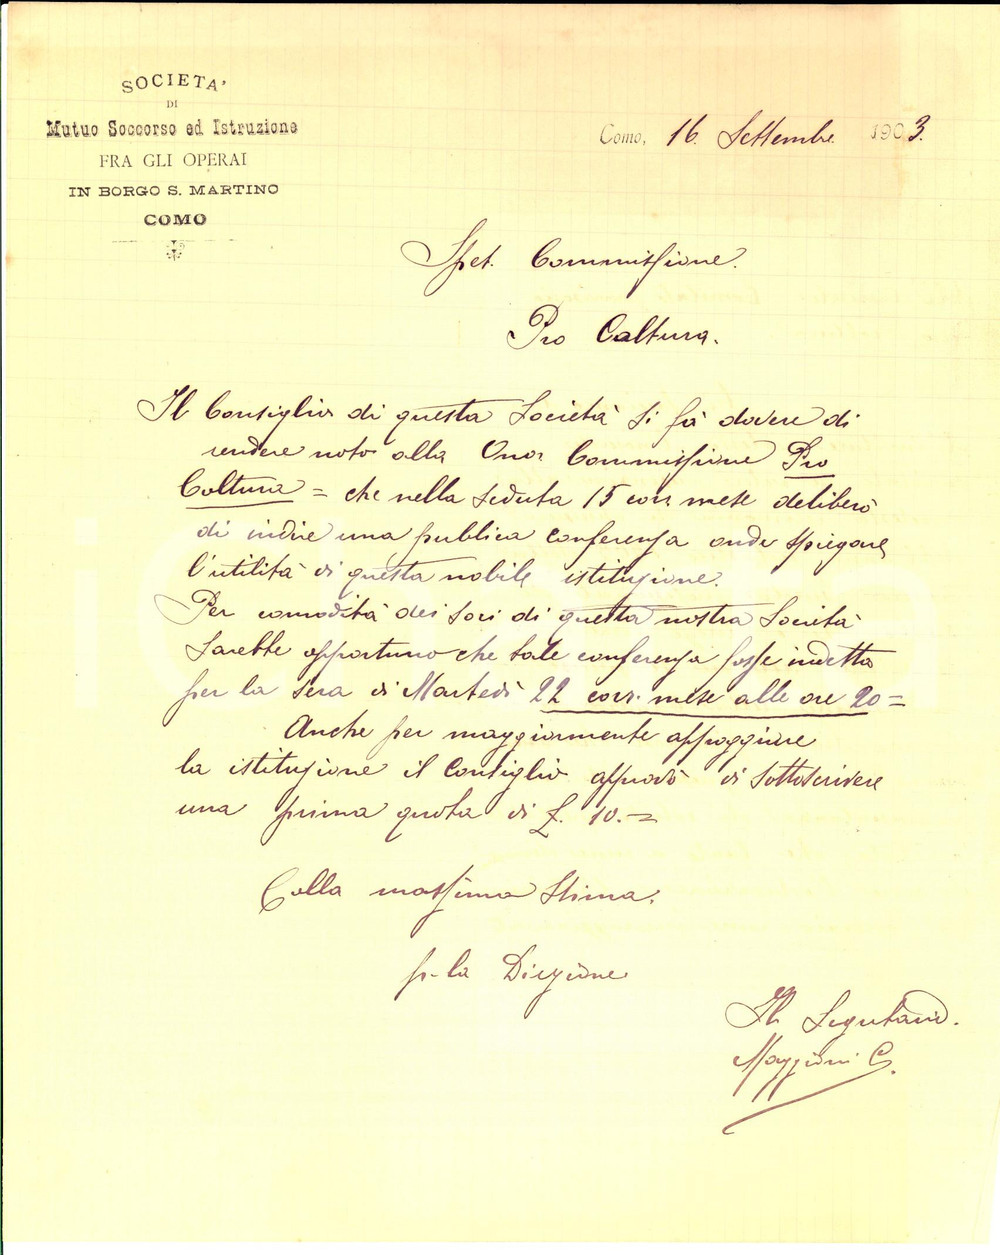 SOCIETA'
DI
Mutuo Soccorso ed Istruzione
FRA GLI OPERAI
IN BORGO S. MARTINO
COMO
Como, 16. Settembre. 1903.
Spet. Commissione.
Pro Coltura.
Il Consiglio di questa Società si fà dovere di
rendere noto alla Onor. Commissione Pro
Coltura = che nella seduta 15 corr. mese deliberò
di indire una publica conferenza onde spiegare
l'utilità di questa nobile istituzione.
Per comodità dei soci di questa nostra Società
sarebbe opportuno che tale conferenza fosse indetta
per la sera di Martedì 22 corr. mese alle ore 20 =
Anche per maggiormente appoggiare
la istituzione il Consiglio approvò di sottoscrivere
una prima quota di £. 10. =
Colla massima stima.
p. la Direzione
Il Segretario.
Maggioni C.